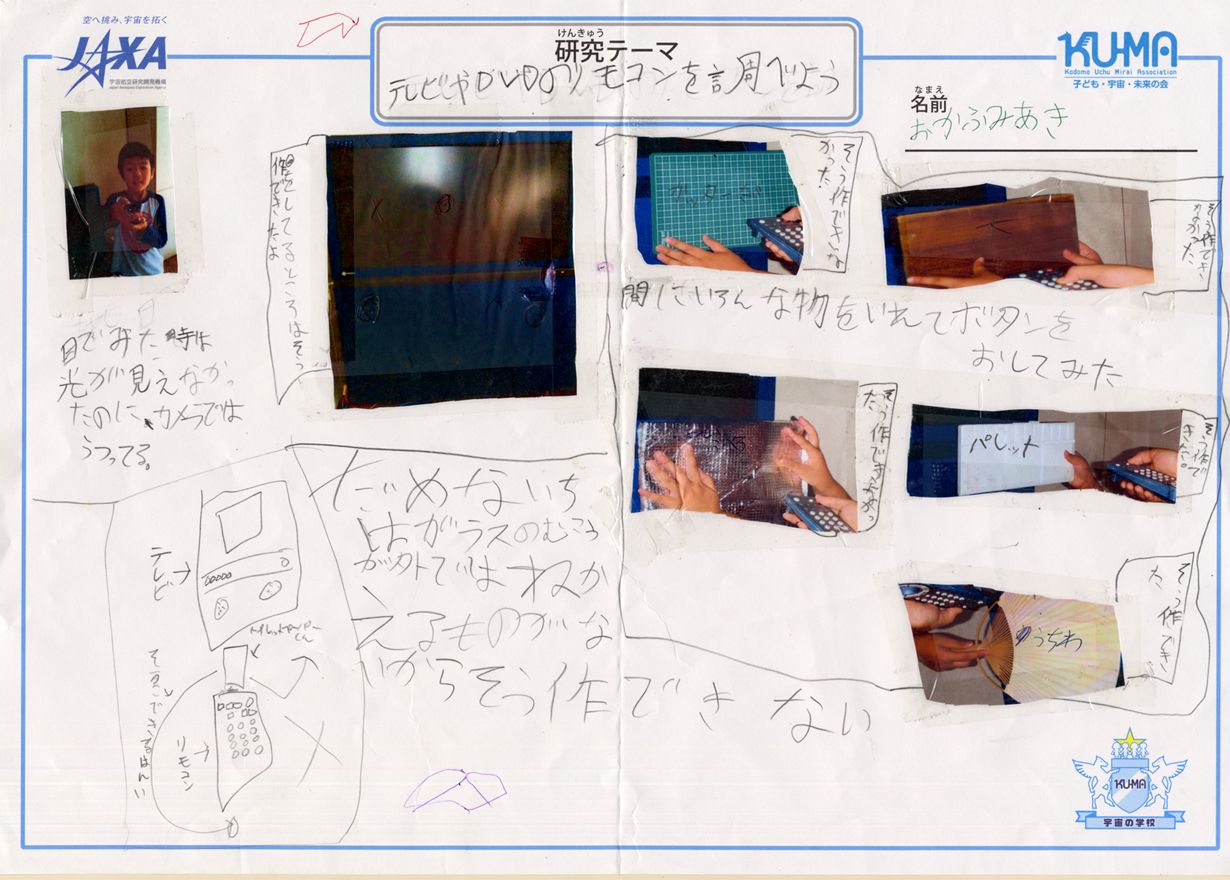 空へ挑み、宇宙を拓く
JAXA
宇宙航空研究開発機構
Japan Aerospace Exploration Agency
けんきゅう
研究テーマ
テレビやDVDのリモコンを調べよう
KU-MA
Kodomo Uchu Mirai Association
子ども・宇宙・未来の会
なまえ
名前
おかふみあき
目でみた時は
光が見えなかっ
たのに、カメラでは
うつってる。
してるところはそう
作できたよ
カッターボ
そう作できな
かった
木
そう作でき
なかった
間にいろんな物をいれてボタンを
おしてみた
そう作できなかっ
た
パレット
そう作で
きた。
うちわ
そう作でき
た
だめないち
はガラスのむこう
が外ではねか
えるものがな
いからそう作できない
テレビ→
トイレットペーパー
しん
リモコン→
そう作できるはんい
KU-MA
宇宙の学校